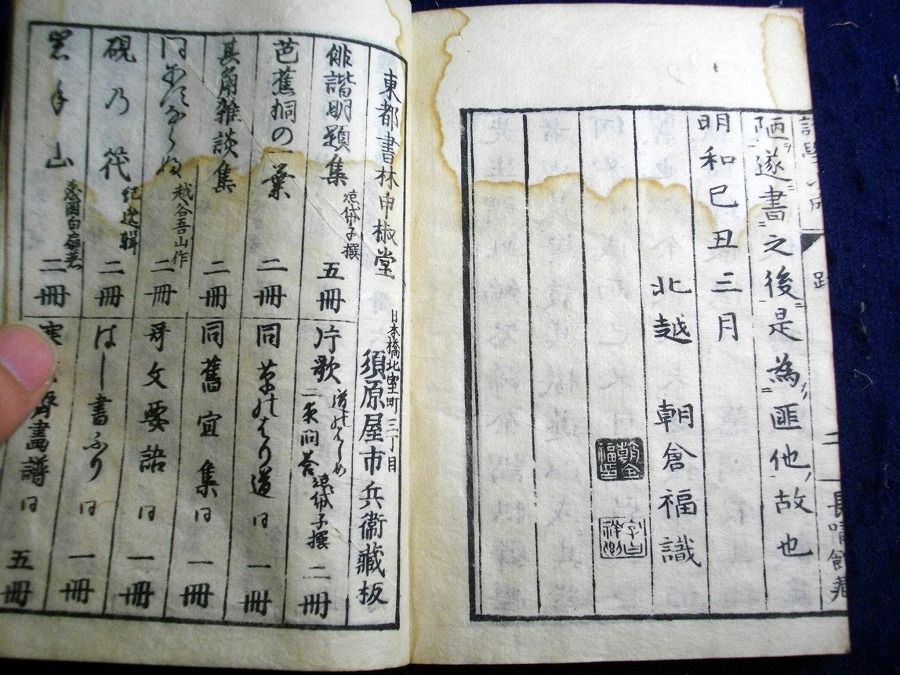 陋遂書之後是為匪他故也
明和己丑三月
北越 朝倉福識
跋
二
長嘯館蔵
東都書林申椒堂
日本橋北室町三丁目
須原屋市兵衛藏板
俳諧明題集 涼帒子撰 五冊
芭蕉桐の一葉 二冊
其角雑談集 二冊
越谷吾山作 二冊
硯乃筏 紀逸輯 二冊
岩手山 二冊
片歌 二夜問答 涼帒子撰 二冊
同 草のはり道 同 一冊
同舊宜集 同 一冊
哥文要語 同 一冊
はし書ふり 同 一冊
齋畫譜 同 五冊